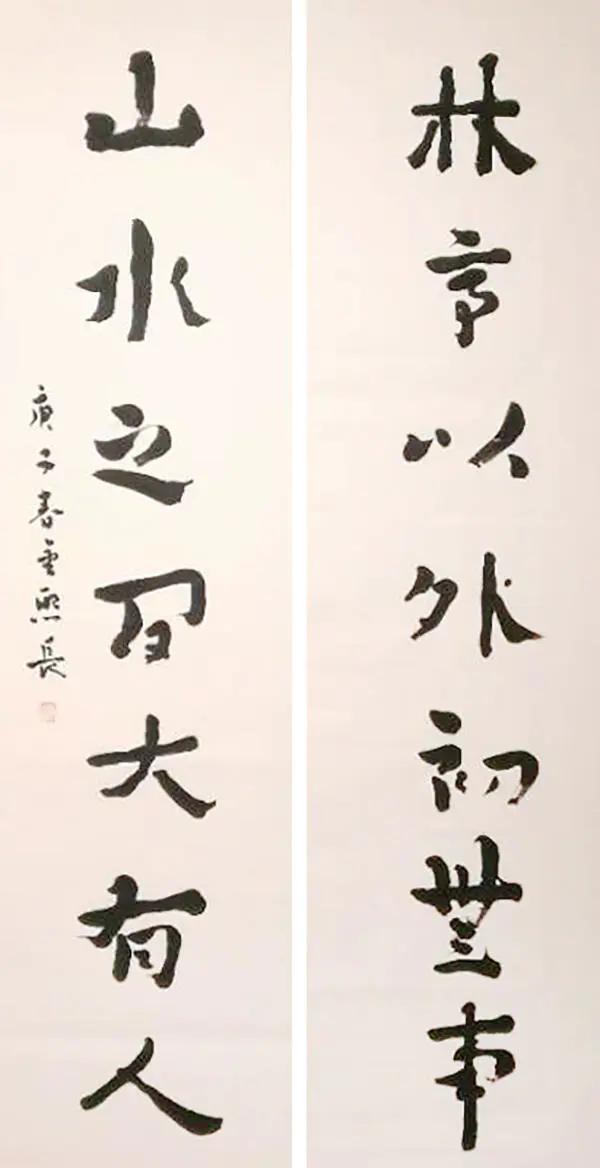 林亭以外初無事
山水之間大有人
庚子春金熙長